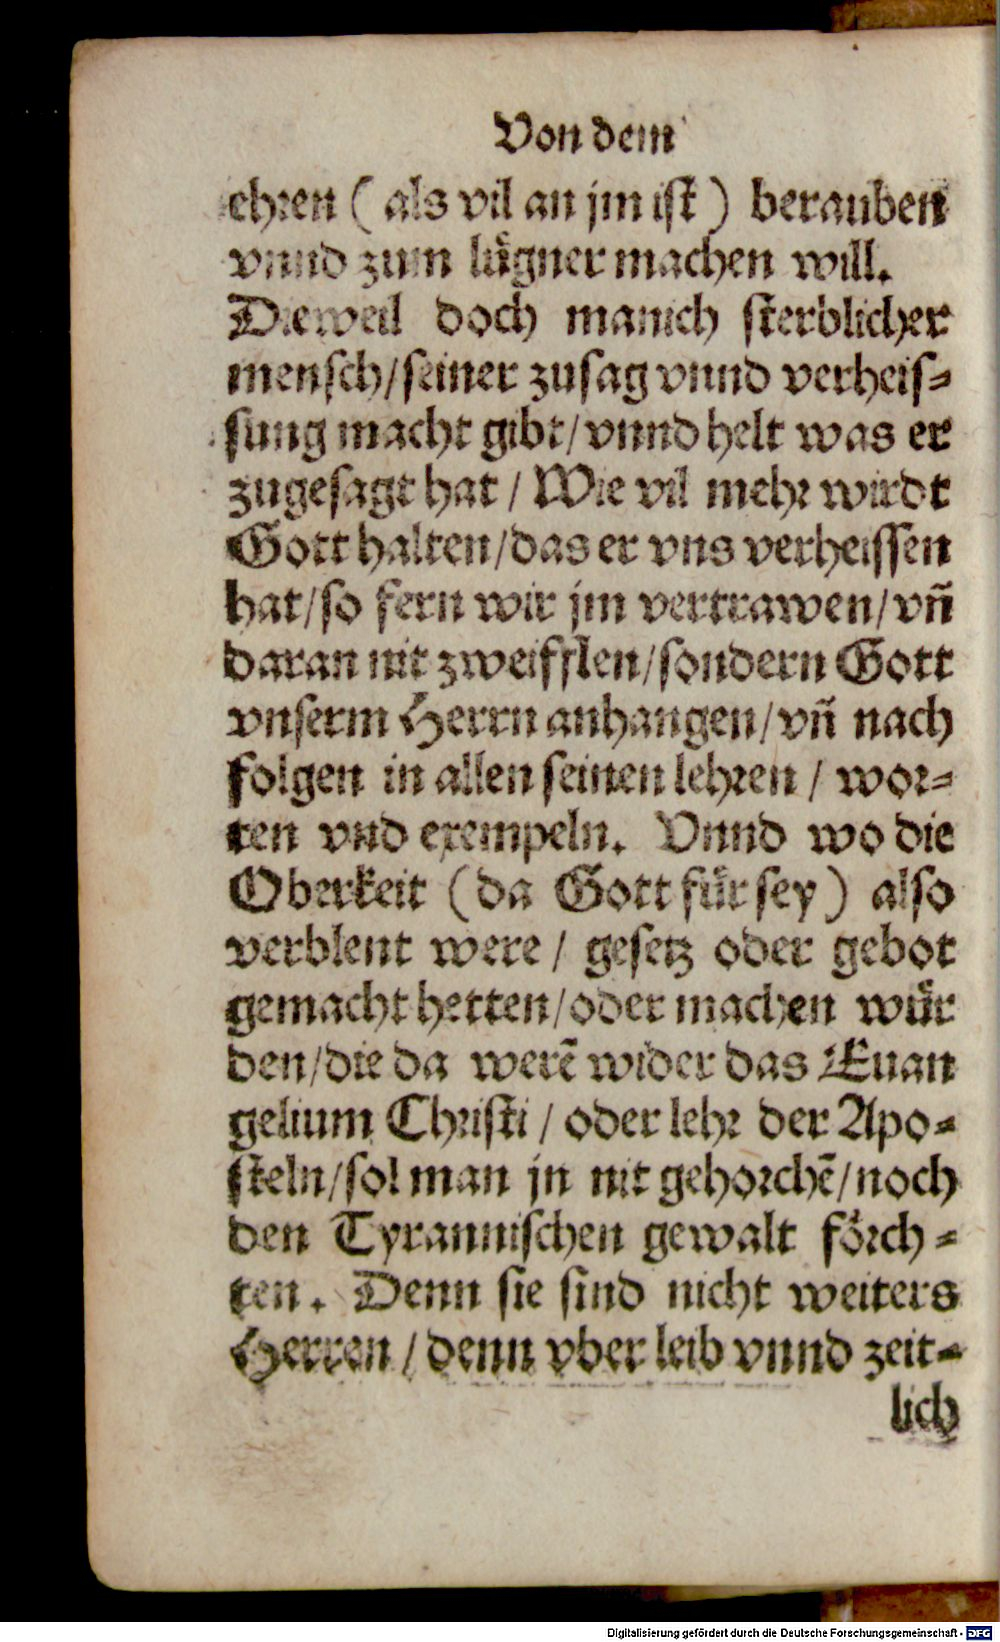 Von dem
ehren (als vil an jm ist) berauben
vnnd zum luͤgner machen will.
Dieweil doch manich sterblicher
mensch/seiner zusag vnnd verheis-
sung macht gibt/vnnd helt was er
zugesagt hat / Wie vil mehr wirdt
Gott halten/das er vns verheissen
hat/so fern wir jm vertrawen/vn̄
daran nit zweifflen/sondern Gott
vnserm Herrn anhangen/vn̄ nach
folgen in allen seinen lehren / wor-
ten vnd exempeln. Vnnd wo die
Oberkeit (da Gott fuͤr sey) also
verblent were / gesetz oder gebot
gemacht hetten/oder machen wuͤr
den/die da werē wider das Euan
gelium Christi / oder lehr der Apo-
steln/sol man jn nit gehorchē/noch
den Tyrannischen gewalt foͤrch-
ten. Denn sie sind nicht weiters
Herren / denn vber leib vnnd zeit-
lich
Digitalisierung gefördert durch die Deutsche Forschungsgemeinschaft - DFG